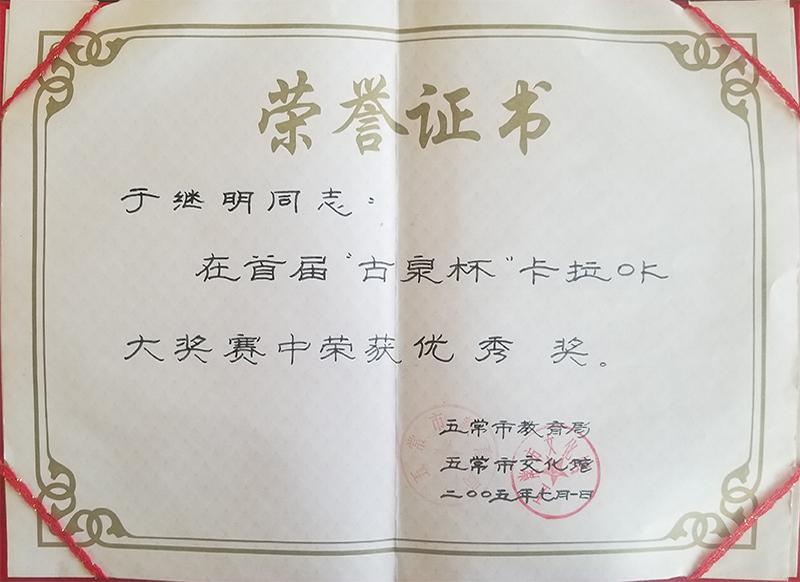 荣誉证书
于继明同志：
在首届"古泉杯"卡拉OK
大奖赛中荣获优秀奖。
五常市教育局
五常市文化馆
二００五年七月一日